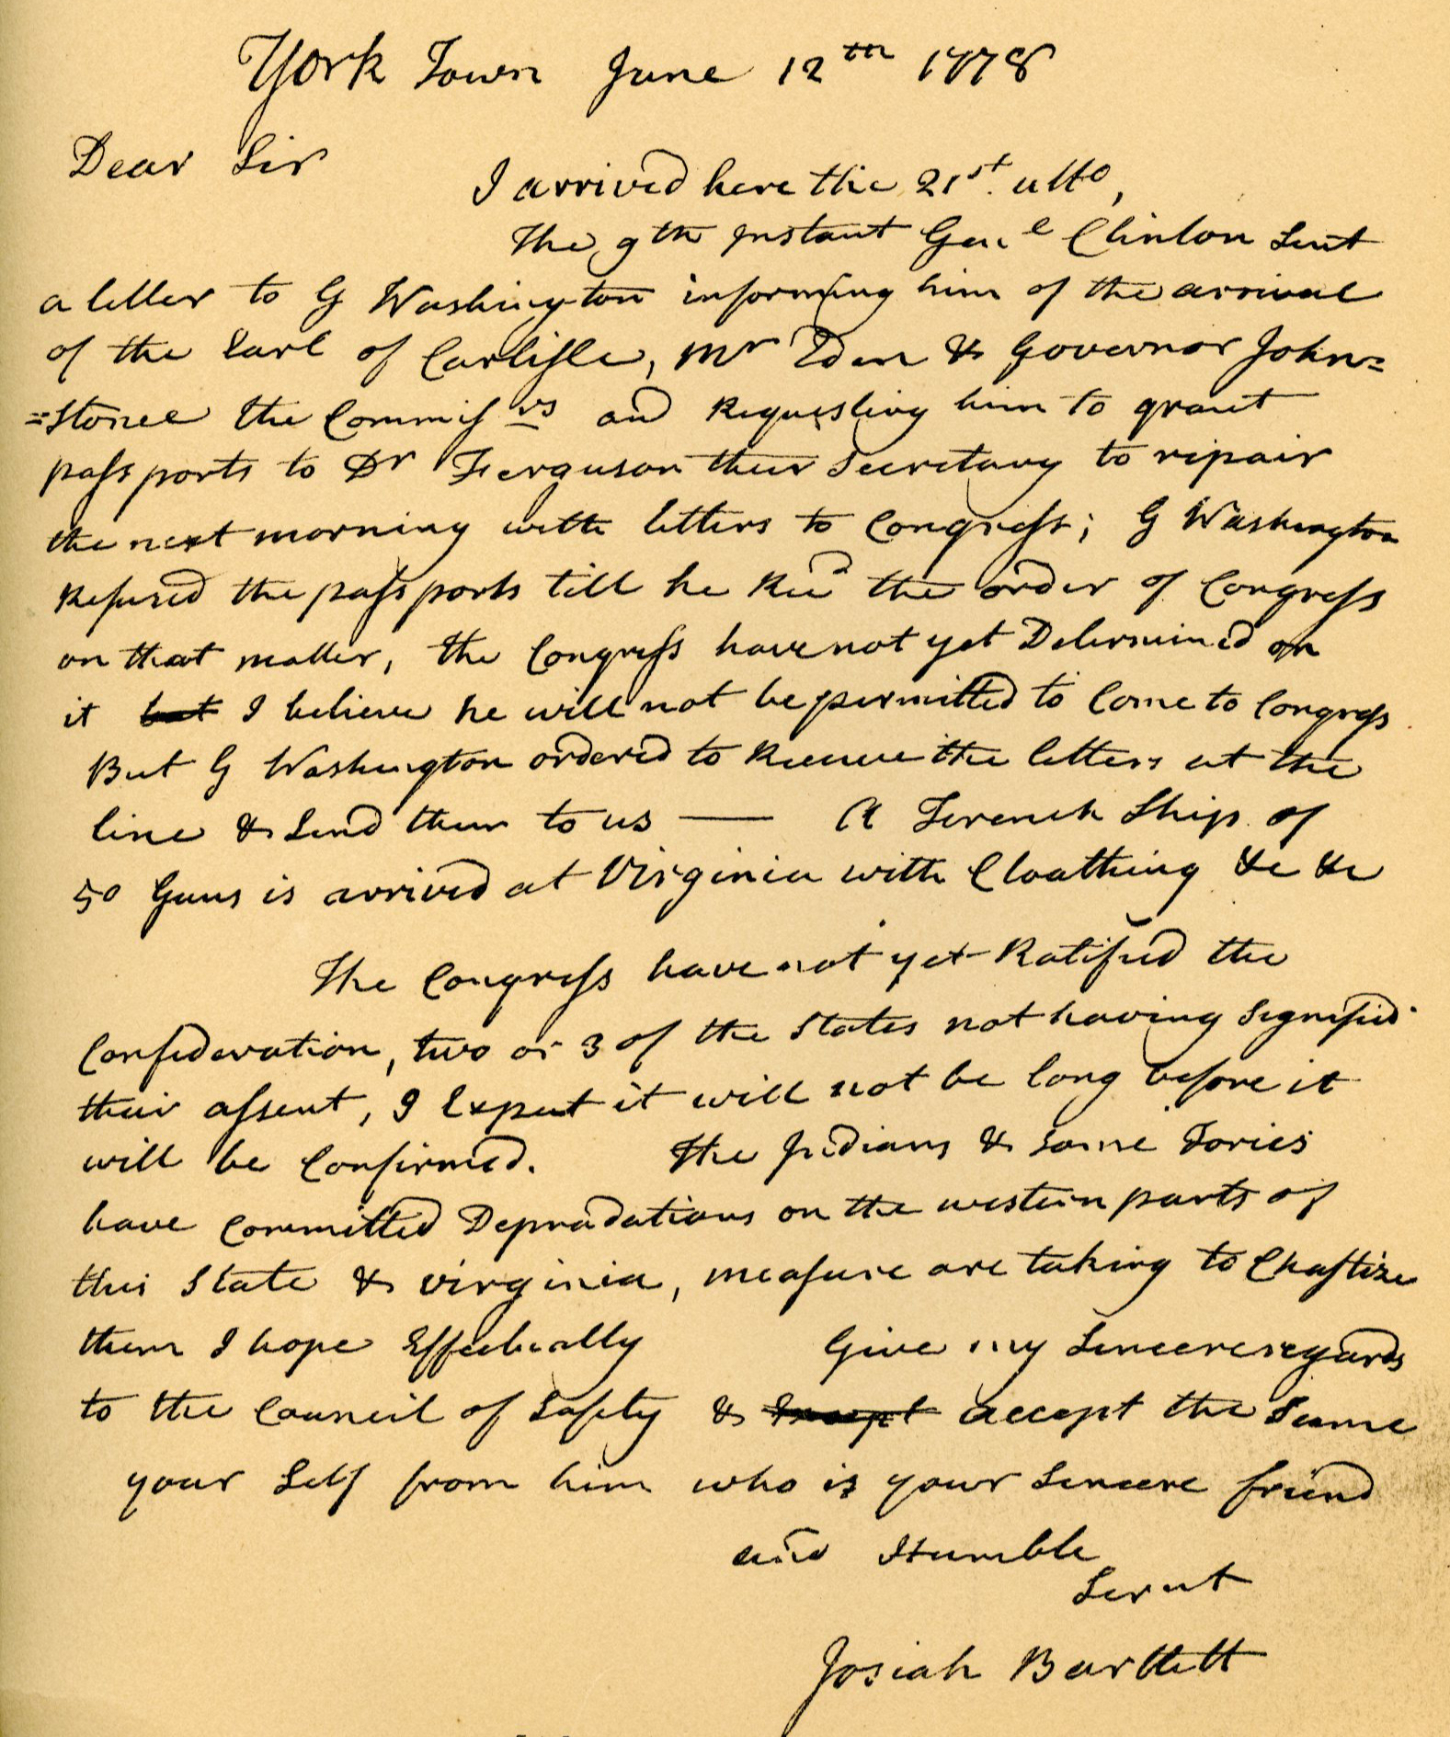 York Town June 12th 1778
Dear Sir
I arrived here the 21st. ulto,
The 9th Instant Genl Clinton Sent
a letter to G Washington informing him of the arrival
of the Earl of Carlisle, Mr Eden & Governor John=
=stone the Commissrs and Requesting him to grant
passports to Dr Ferguson their Secretary to repair
the next morning with letters to Congress; G Washington
Refused the passports till he Recd the order of Congress
on that matter, the Congress have not yet Determined on
it but I believe he will not be permitted to Come to Congress.
But G Washington ordered to Receive the letters at the
line & Send them to us — A French Ship of
50 Guns is arrived at Virginia with Cloathing &c &c
The Congress have not yet Ratified the
Confederation, two or 3 of the States not having Signified
their assent, I Expect it will not be long before it
will be Confirmed. The Indians & Some Tories
have Committed Depradations on the western parts of
this State & Virginia, measure are taking to Chastize
them I hope Effectually Give my Sincere regards
to the Council of Safety & accept the Same
your Self from him who is your Sincere friend
and Humble
Servt
Josiah Bartlett